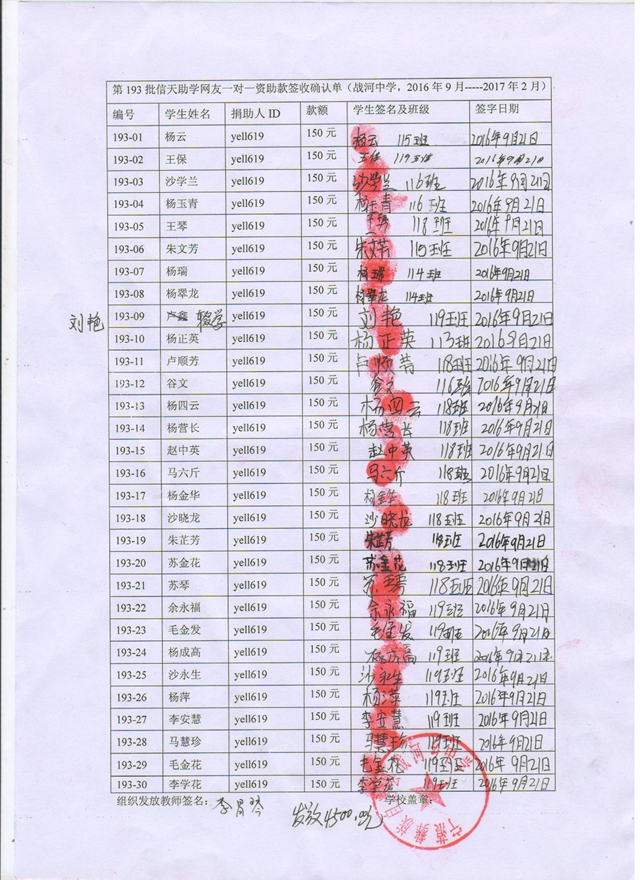 第 193 批信天助学网友一对一资助款签收确认单（战河中学，2016 年 9 月-----2017 年 2 月）
编号 学生姓名 捐助人 ID 款额 学生签名及班级 签字日期
193-01 杨云 yell619 150 元 杨云 115班 2016年9月21日
193-02 王保 yell619 150 元 王保 119班 2016年9月21日
193-03 沙学兰 yell619 150 元 沙学兰 116班 2016年9月21日
193-04 杨玉青 yell619 150 元 杨玉青 116班 2016年9月21日
193-05 王琴 yell619 150 元 王琴 118班 2016年9月21日
193-06 朱文芳 yell619 150 元 朱文芳 115班 2016年9月21日
193-07 杨瑞 yell619 150 元 杨瑞 114班 2016年9月21日
193-08 杨翠龙 yell619 150 元 杨翠龙 114班 2016年9月21日
刘艳 193-09 辍学 yell619 150元 刘艳 119班 2016年9月21日
193-10 杨正英 yell619 150 元 杨正英 113班 2016年9月21日
193-11 卢顺芳 yell619 150 元 卢顺芳 118班 2016年9月21日
193-12 谷文 yell619 150 元 谷文 116班 2016年9月21日
193-13 杨四云 yell619 150 元 杨四云 118班 2016年9月21日
193-14 杨营长 yell619 150 元 杨营长 118班 2016年9月21日
193-15 赵中英 yell619 150 元 赵中英 118班 2016年9月21日
193-16 马六斤 yell619 150 元 马六斤 118班 2016年9月21日
193-17 杨金华 yell619 150 元 杨金华 118班 2016年9月21日
193-18 沙晓龙 yell619 150 元 沙晓龙 118班 2016年9月21日
193-19 朱芷芳 yell619 150 元 朱芷芳 118班 2016年9月21日
193-20 苏金花 yell619 150 元 苏金花 118班 2016年9月21日
193-21 苏琴 yell619 150 元 苏琴 118班 2016年9月21日
193-22 余永福 yell619 150 元 余永福 119班 2016年9月21日
193-23 毛金发 yell619 150 元 毛金发 119班 2016年9月21日
193-24 杨成高 yell619 150 元 杨成高 119班 2016年9月21日
193-25 沙永生 yell619 150 元 沙永生 119班 2016年9月21日
193-26 杨萍 yell619 150 元 杨萍 119班 2016年9月21日
193-27 李安慧 yell619 150 元 李安慧 119班 2016年9月21日
193-28 马慧珍 yell619 150 元 马慧珍 119班 2016年9月21日
193-29 毛金花 yell619 150 元 毛金花 119班 2016年9月21日
193-30 李学花 yell619 150 元 李学花 119班 2016年9月21日
组织发放教师签名： 学校盖章：
发放4500.00元
宁蒗彝族自